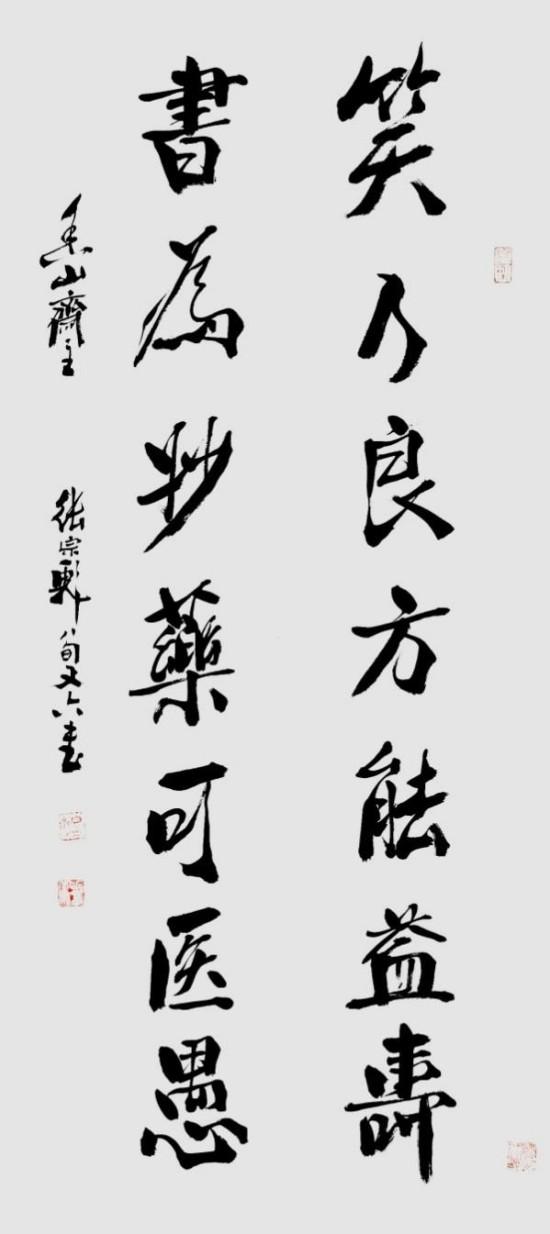 笑乃良方能益壽
書為妙藥可医愚
山齋主
張宗彩八旬又六書